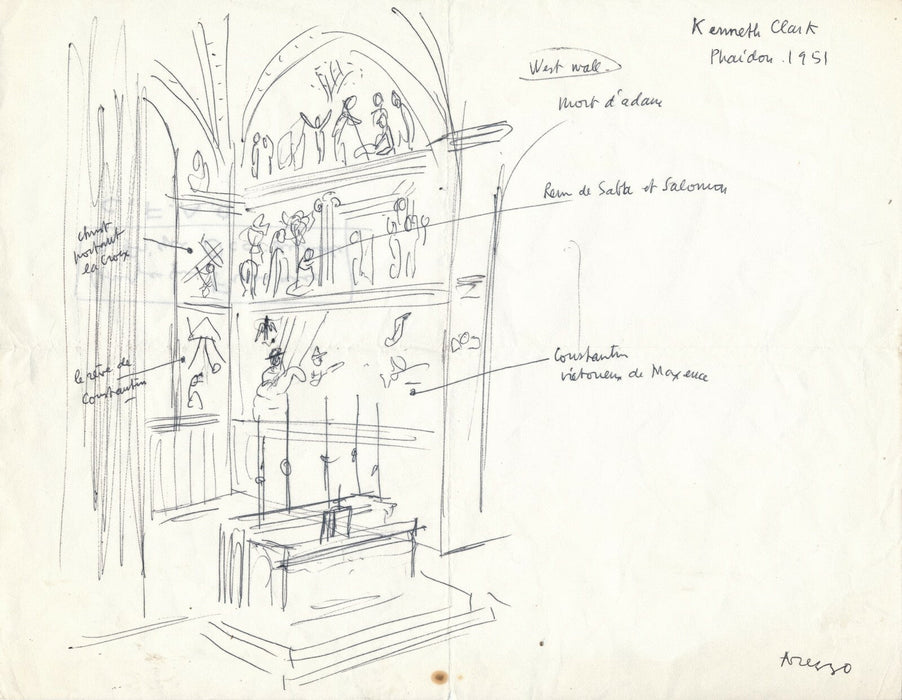 Kenneth Clark
Phaïdon. 1951
West wall
mort d'adam
Reine de Saba et Salomon
christ
portant
la Croix
le rêve de
Constantin
Constantin
victorieux de Maxence
Arezzo